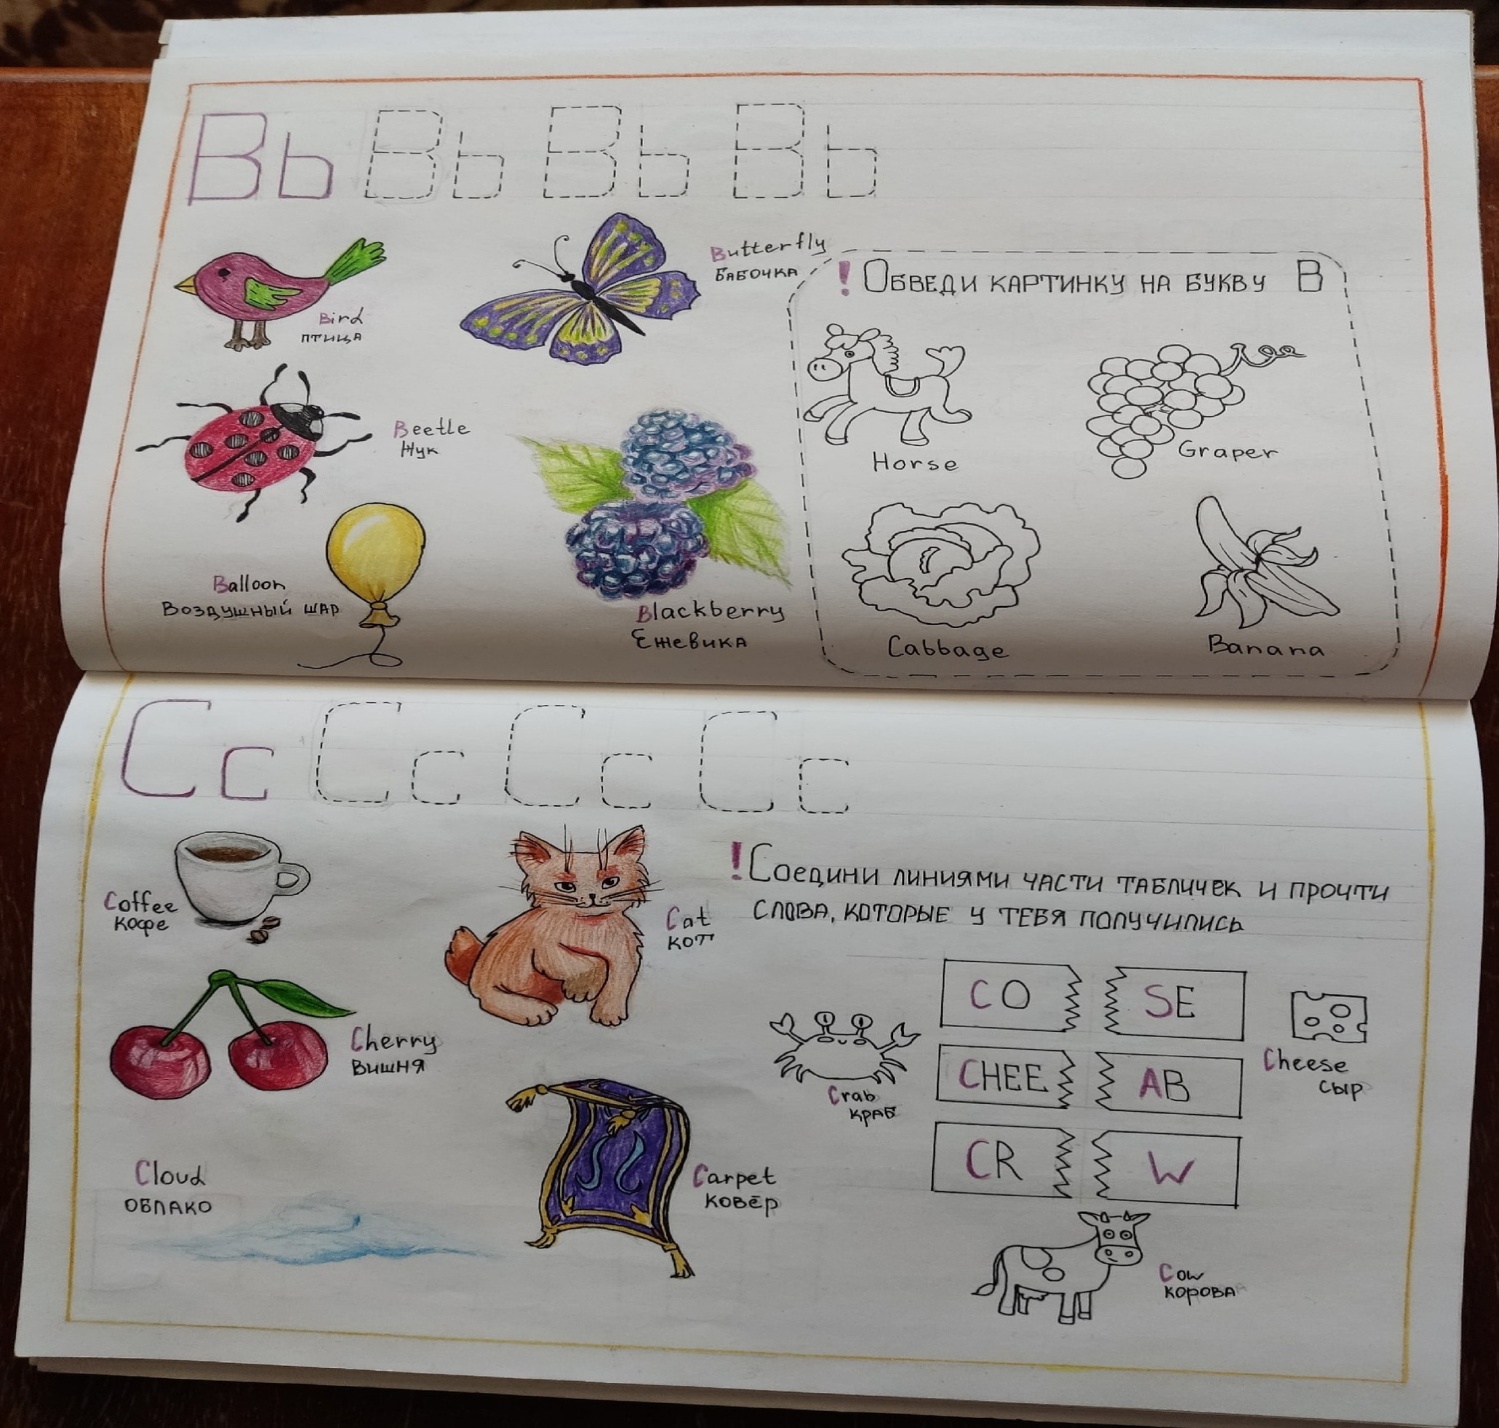 Bb Bb Bb Bb
Bird
птица
Butterfly
бабочка
Beetle
Жук
Balloon
Воздушный шар
Blackberry
Ежевика
! Обведи картинку на букву B
Horse
Graper
Cabbage
Banana
Cc Cc Cc Cc
Coffee
кофе
Cat
кот
Cherry
вишня
Cloud
облако
Carpet
ковёр
! Соедини линиями части табличек и прочти
слова, которые у тебя получились
CO SE
CHEE AB
CR W
Crab
краб
Cheese
сыр
Cow
корова